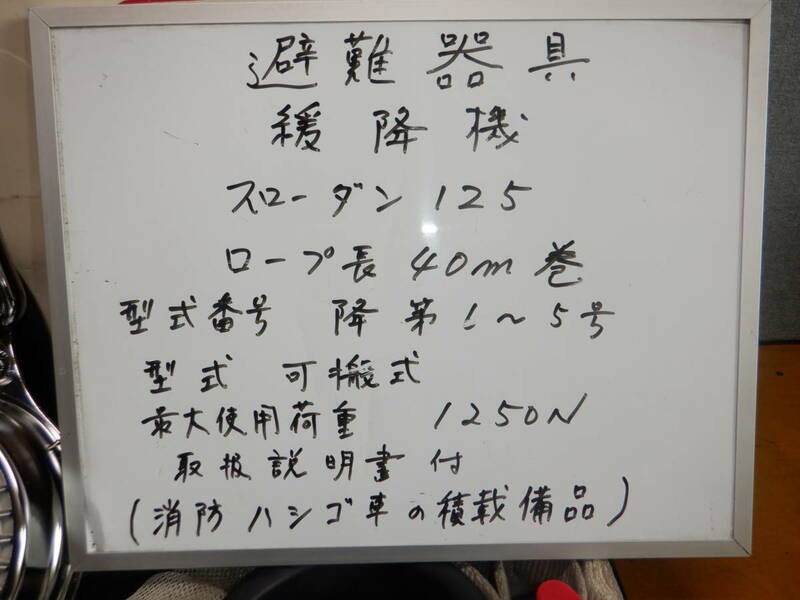 避難器具
緩降機
スローダン 125
ロープ長 40m 巻
型式番号 降第1〜5号
型式 可搬式
最大使用荷重 1250N
取扱説明書付
(消防ハシゴ車の積載備品)